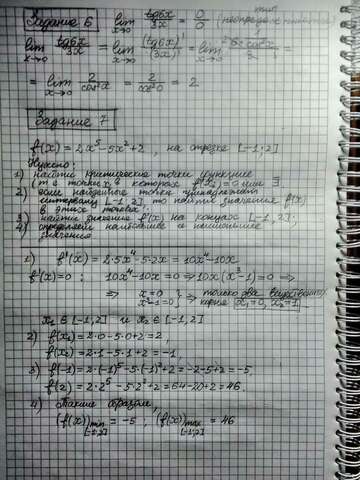 Задание 6
lim x→0 tg6x/3x = 0/0 (неопределённость)
lim x→0 tg6x/3x = lim x→0 (tg6x)'/(3x)' = lim x→0
= lim x→0 2/cos²x = 2/cos²0 = 2
Задание 7
f(x) = 2x⁵-5x²+2, на отрезке [-1;2]
Нужно:
1) найти критические точки функции
(т.е. точки, в которых f'(x)=0 или ∄
2) если найденные точки принадлежат
интервалу [-1,2], то найти значение f(x)
в этих точках;
3) найти значение f(x) на концах [-1,2];
4) определяем наибольшее и наименьшее
значения
1) f'(x) = 2·5x⁴-5·2x = 10x⁴-10x
f'(x)=0 : 10x⁴-10x=0 ⇒ 10x(x³-1)=0 ⇒
⇒ x=0 x³-1=0 } ⇒ только два
корня x₁=0, x₂=1
x₁ ∈ [-1,2] и x₂ ∈ [-1,2]
2) f(x₁) = 2·0-5·0+2 = 2,
f(x₂) = 2·1-5·1+2 = -1,
3) f(-1) = 2·(-1)⁵-5·(-1)²+2 = -2-5+2 = -5,
f(2) = 2·2⁵-5·2²+2 = 64-20+2 = 46.
4) Таким образом,
(f(x))min [-1;2] = -5, (f(x))max [-1;2] = 46